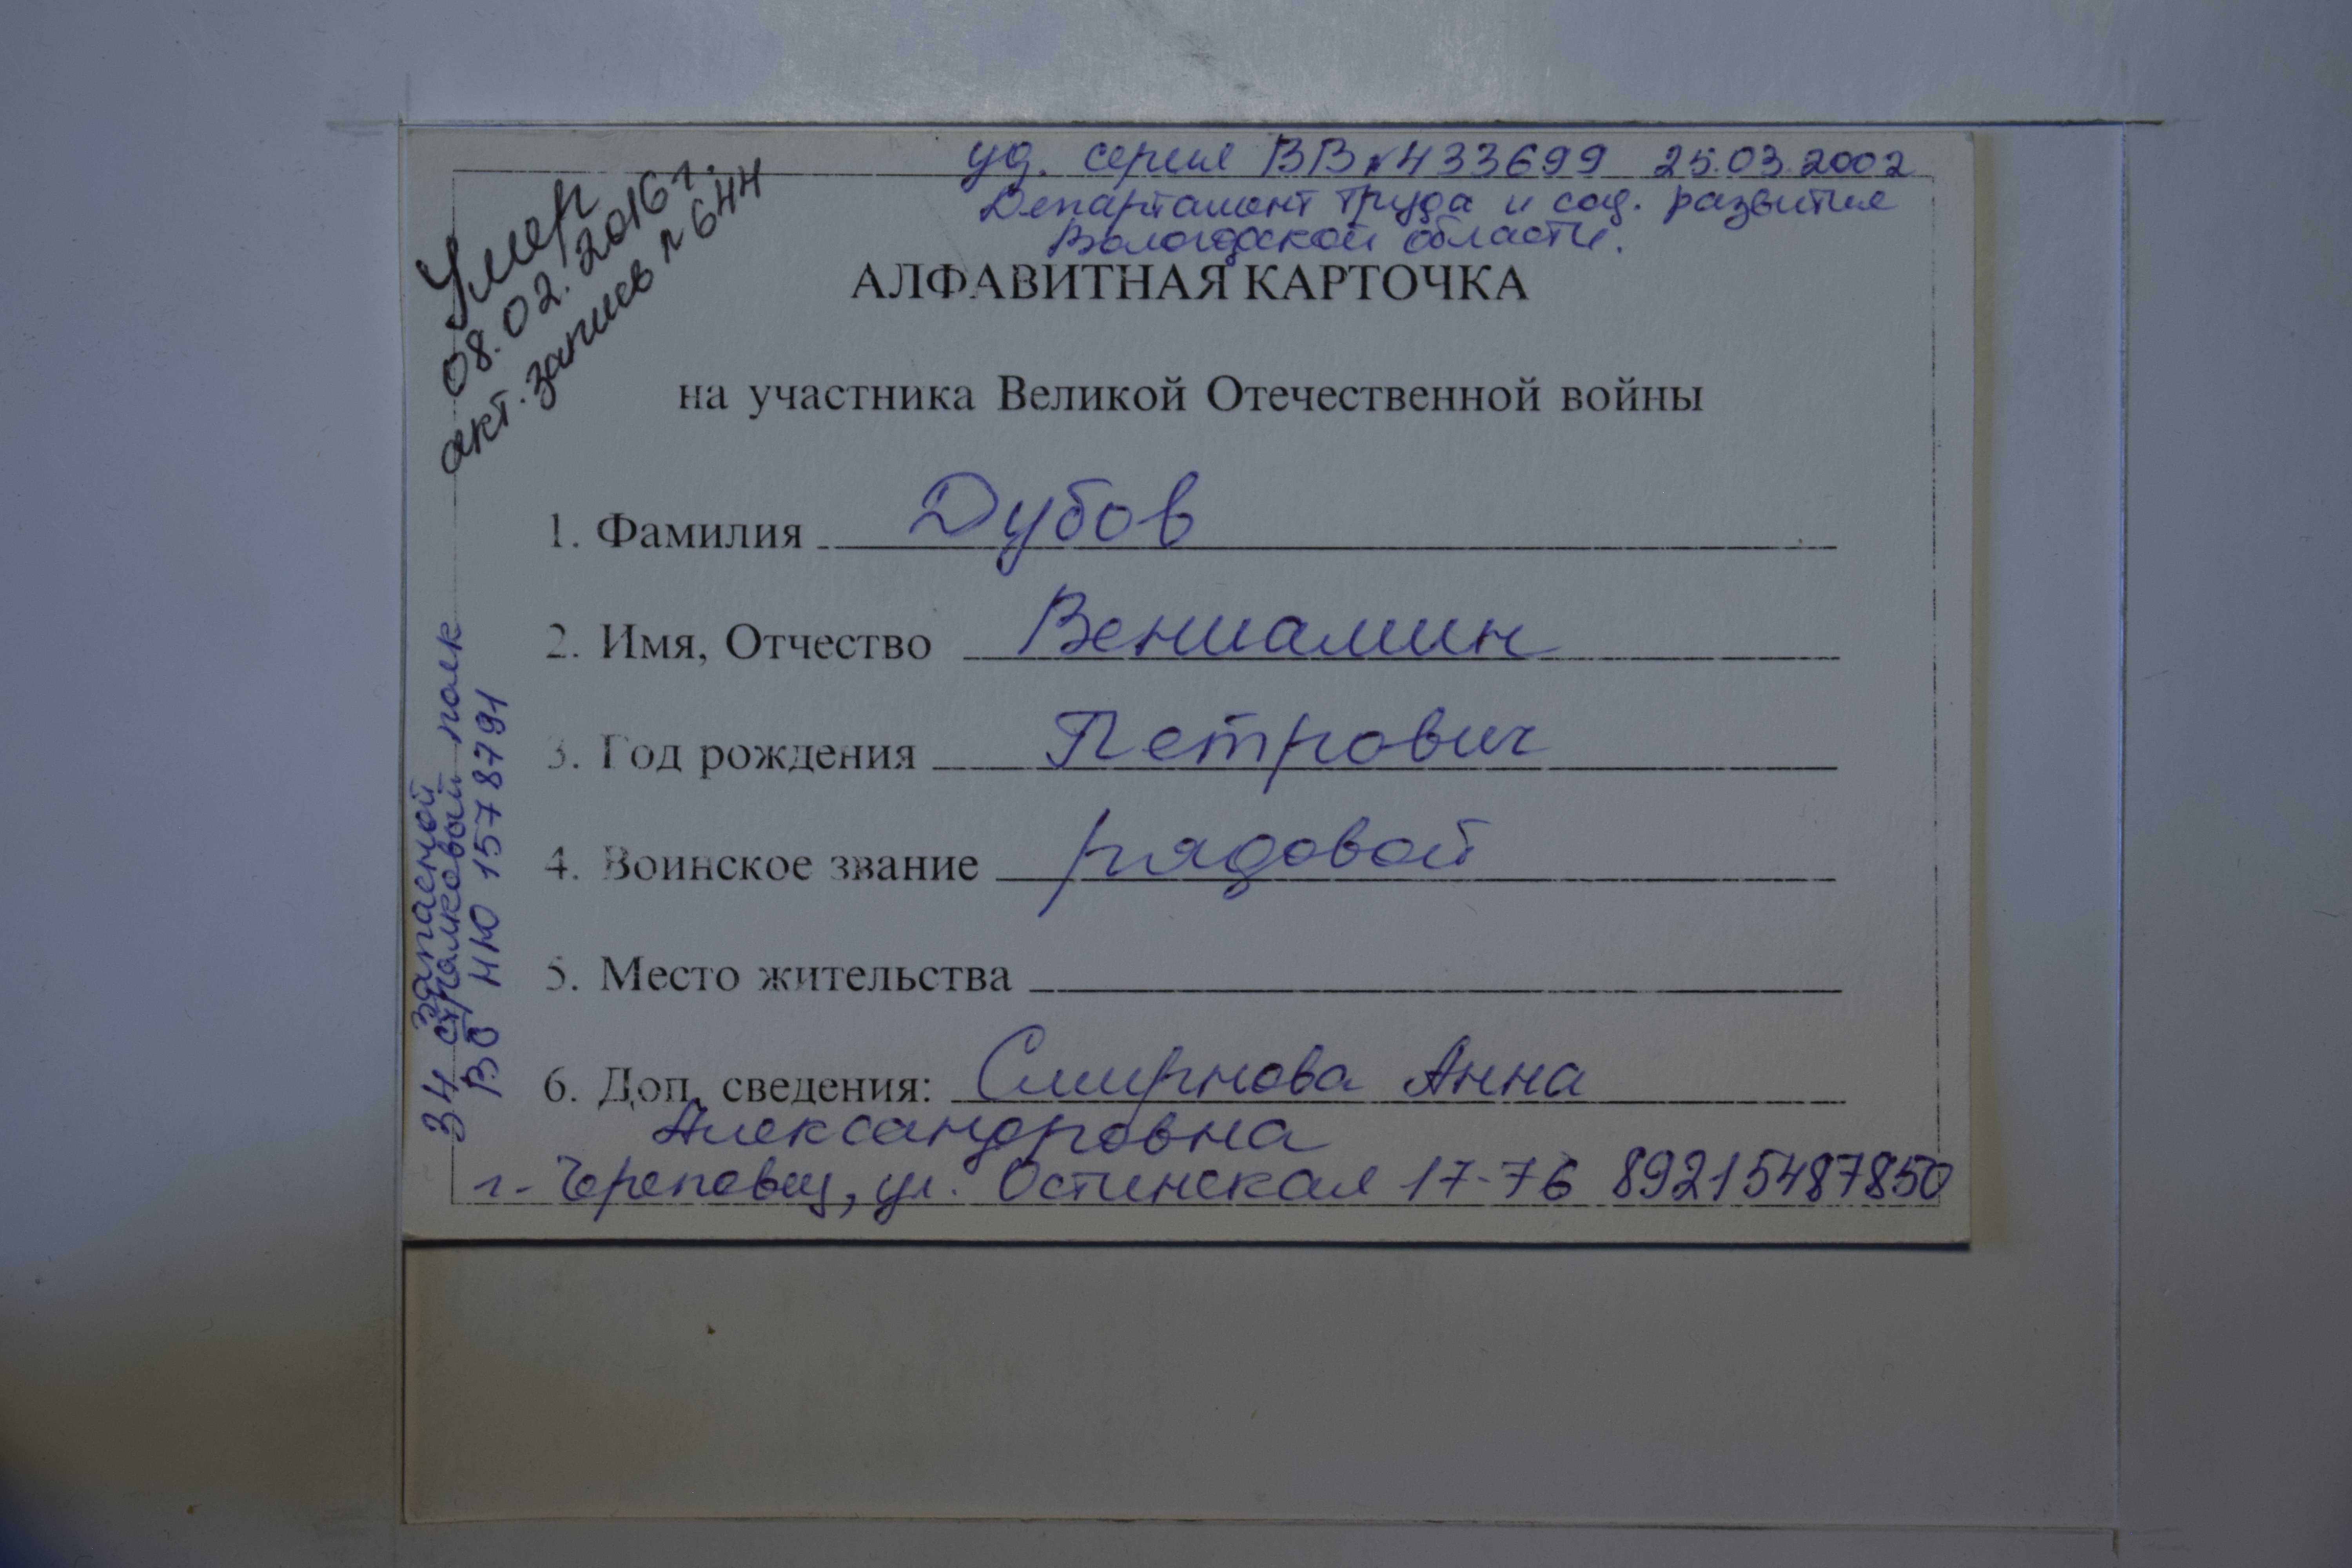 уд. серия ВВ №433699 25.03.2002
Департамент труда и соц. развития
Вологодской области.
Умер
08.02.2016 г.
акт. запись №644
АЛФАВИТНАЯ КАРТОЧКА
на участника Великой Отечественной войны
1. Фамилия Дубов
2. Имя, Отчество Вениамин
3. Год рождения Петрович
4. Воинское звание рядовой
5. Место жительства
6. Доп. сведения: Смирнова Анна
Александровна
г. Череповец, ул. Остинская 17-76 89215487850
запасной
34 стрелковый полк
ВБ НЮ 1578791